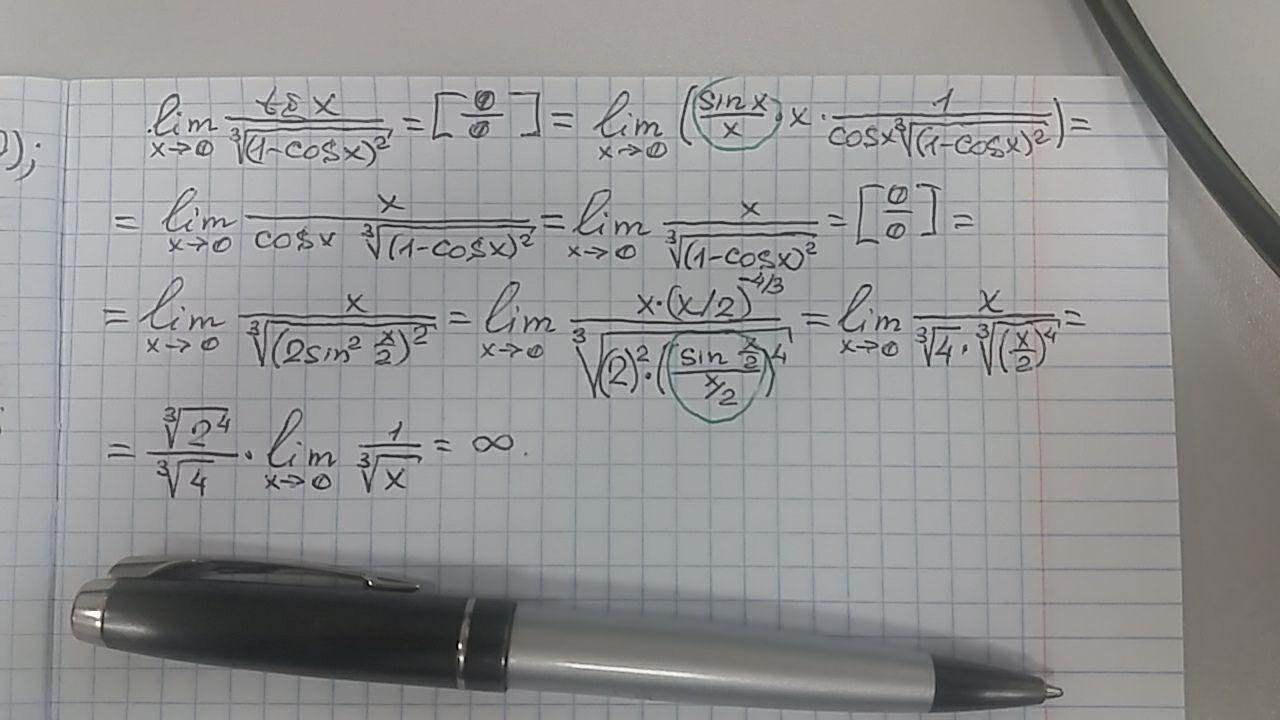 lim x→0 tg x / ∛((1-cosx)²) = [0/0] = lim x→0 (sin x / x · x · 1 / (cosx ∛((1-cosx)²))) =
);
= lim x→0 x / (cosx ∛((1-cosx)²)) = lim x→0 x / ∛((1-cosx)²) = [0/0] =
= lim x→0 x / ∛((2sin² x/2)²) = lim x→0 x·(x/2)^(-4/3) / ∛((2)²·(sin x/2 / x/2)⁴) = lim x→0 x / (∛4 · ∛((x/2)⁴)) =
= ∛(2⁴) / ∛4 · lim x→0 1 / ∛x = ∞.